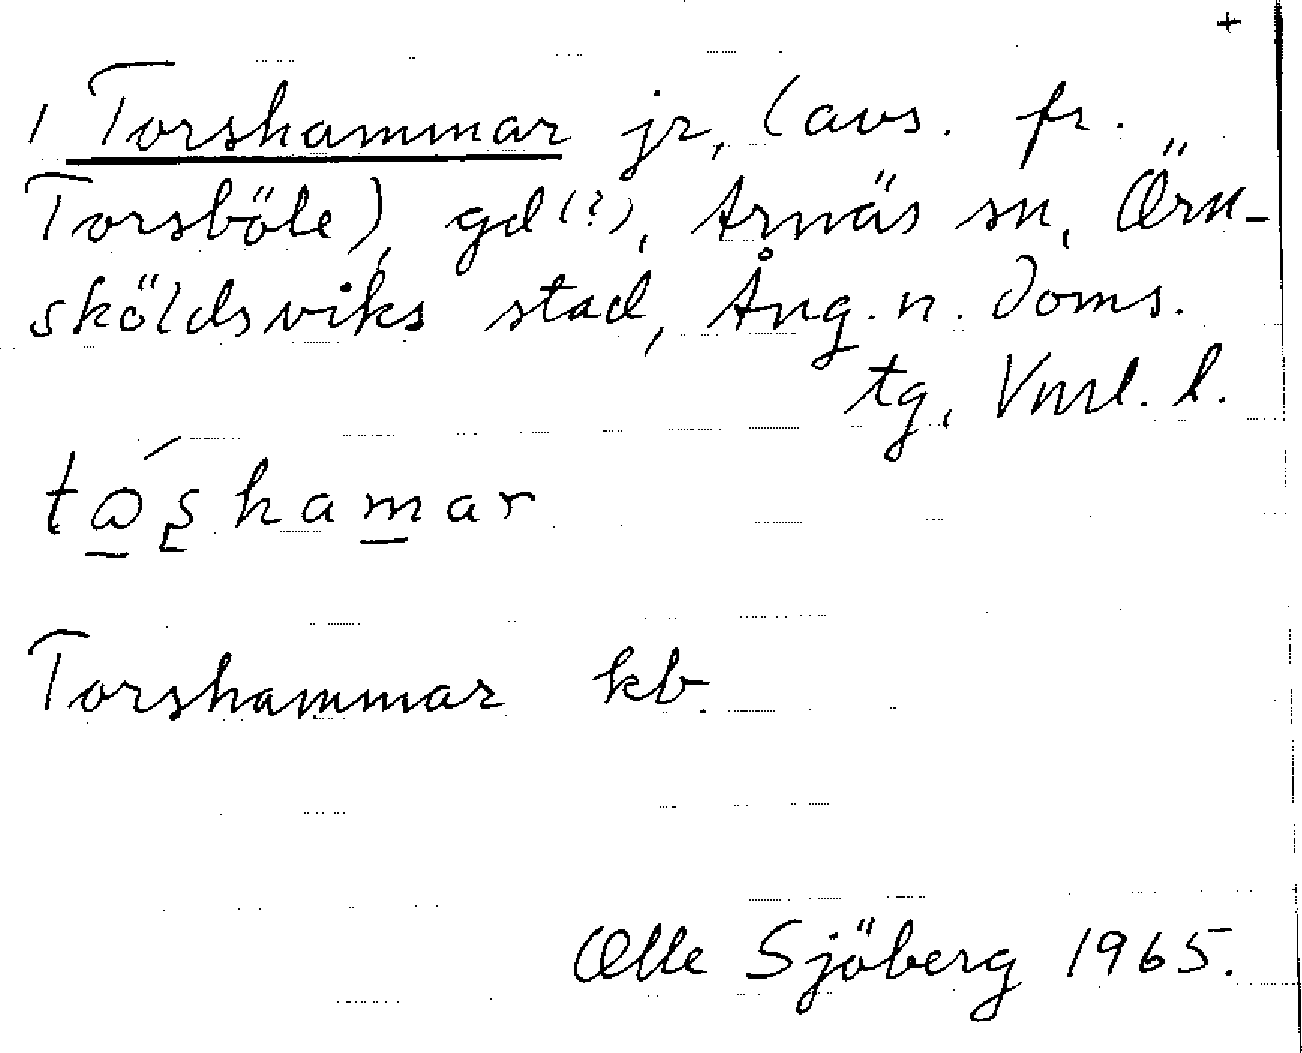 +
1 Torshammar jr, (avs. fr.
Torsböle), gd(?), Arnäs sn, Örn-
sköldsviks stad, Ång. n. doms.
tg, Vnrl. l.
tɷ́ʂhamar
Torshammar kb.
Olle Sjöberg 1965.